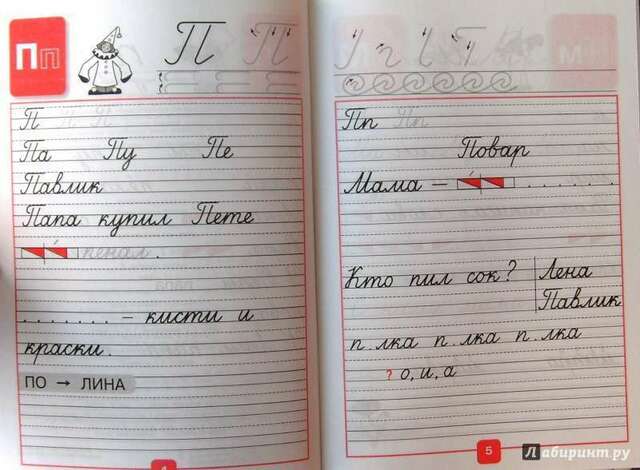 Пп
П П
П
Па Пу Пе
Павлик
Папа купил Пете
пенал.
. . . . . . . – кисти и
краски.
ПО → ЛИНА
Пп Пп
Повар
Мама – . . . . . . .
Кто пил сок? Лена
Павлик
п.лка п.лка п.лка
? о, и, а
5
Лабиринт.ру